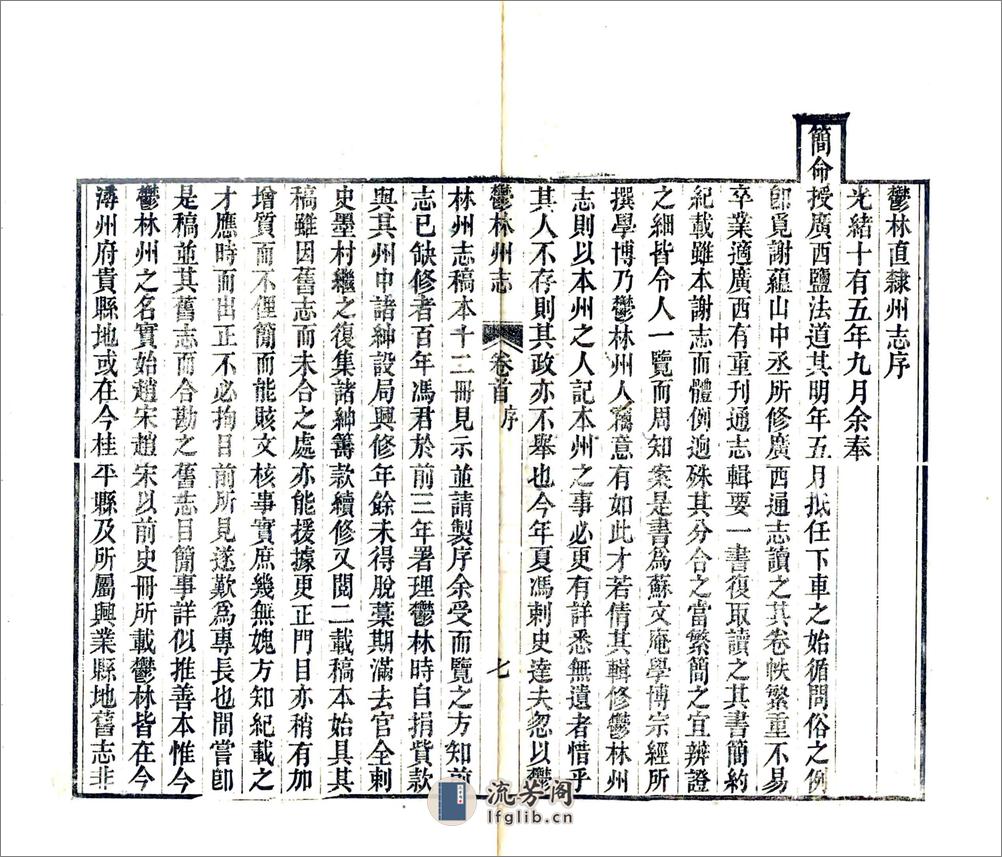 鬱林直隸州志序
光緒十有五年九月余奉
簡命授廣西鹽法道其明年五月抵任下車之始循問俗之例
卽覓謝蘊山中丞所修廣西通志讀之其卷帙繁重不易
卒業適廣西有重刊通志輯要一書復取讀之其書簡約
紀載雖本謝志而體例逈殊其分合之當繁簡之宜辨證
之細皆令人一覽而周知案是書爲蘇文庵學博宗經所
撰學博乃鬱林州人竊意有如此才若倩其輯修鬱林州
志則以本州之人記本州之事必更有詳悉無遺者惜乎
其人不存則其政亦不舉也今年夏馮刺史達夫忽以鬱
鬱林州志 卷首 序 七
林州志稿本十二冊見示並請製序余受而覽之方知前
志已缺修者百年馮君於前三年署理鬱林時自捐貲款
與其州中諸紳設局興修年餘未得脫藁期滿去官全刺
史墨村繼之復集諸紳籌款續修又閱二載稿本始具其
稿雖因舊志而未合之處亦能援據更正門目亦稍有加
增質而不俚簡而能賅文核事實庶幾無媿方知紀載之
才應時而出正不必拘目前所見遂歎爲專長也間嘗卽
是稿並其舊志而合勘之舊志目簡事詳似推善本惟今
鬱林州之名實始趙宋趙宋以前史冊所載鬱林皆在今
潯州府貴縣地或在今桂平縣及所屬興業縣地舊志非
流芳阁
lfglib.cn